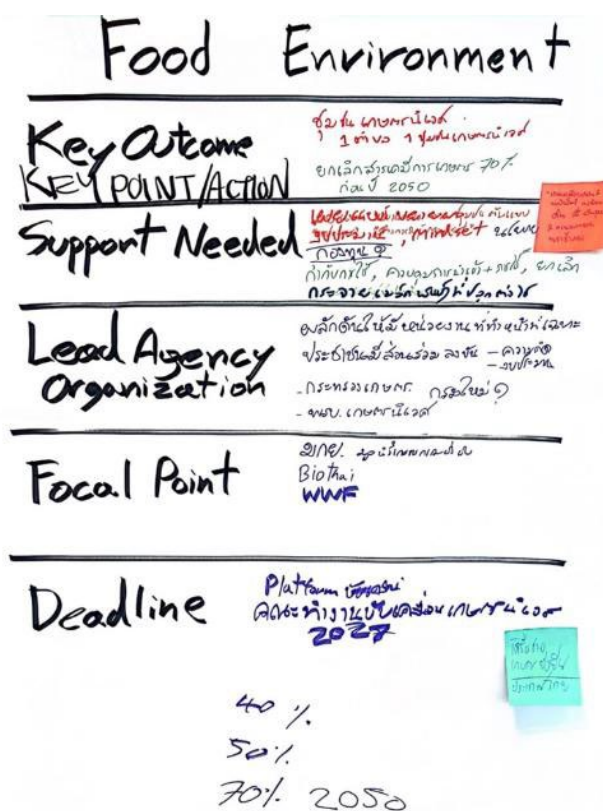 Food Environment
Key Outcome
KEY POINT/ACTION
ชุมชน เกษตรนิเวศ
1 ตำบล 1 ชุมชนเกษตรนิเวศ
ยกเลิกสารเคมีการเกษตร 70%
ก่อนปี 2050
Support Needed
งบประมาณ, mindset นโยบาย
กองทุน
กำกับการใช้, ควบคุมการนำเข้า + การใช้, ยกเลิก
กระจายเมล็ดพันธุ์
Lead Agency
Organization
ผลักดันให้มีหน่วยงานที่ทำหน้าที่เฉพาะ
ประชาชนมีส่วนร่วม ลงขัน - ความคิด
- งบประมาณ
- กระทรวงเกษตร กรมใหม่ ?
- พรบ. เกษตรนิเวศ
Focal Point
Biothai
WWF
Deadline
Platform
คณะทำงานขับเคลื่อนเกษตรนิเวศ
2027
ประเทศไทย
40 %
50%
70% 2050